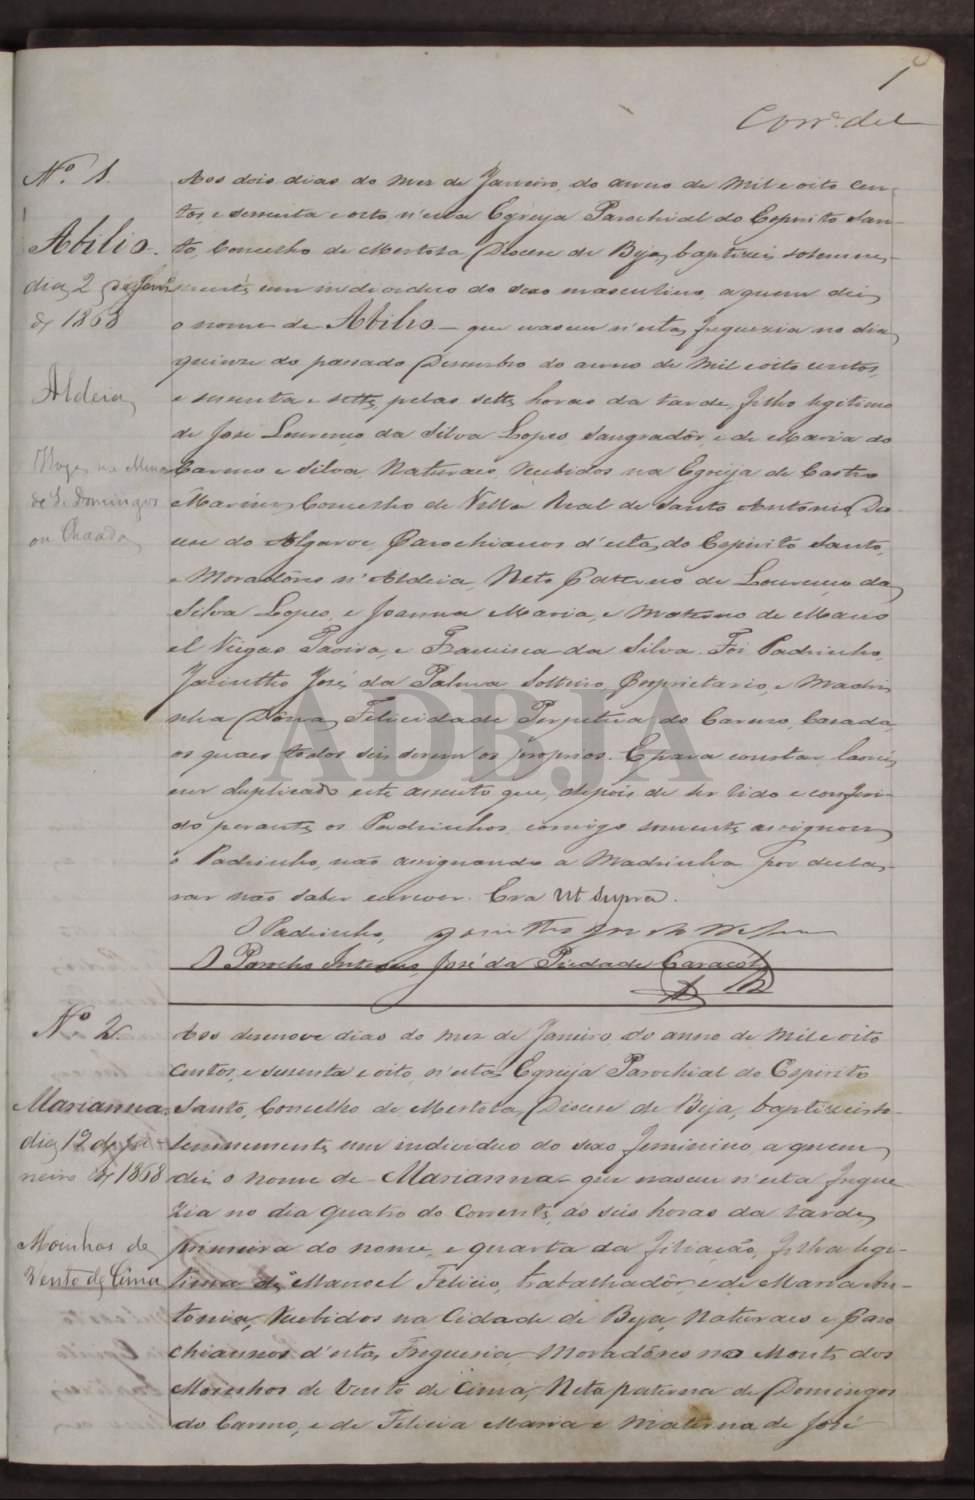 1
Corr.e del
Nº 1.
Abilio.
dia 2 de Janº
de 1868
Aldeia
na Mina
de S. Domingos
Aos dois dias do mez de Janeiro, do anno de mil e oito cen-
tos, e sessenta e oito, n'esta Egreja Parochial do Espirito San-
to, Concelho de Mertola, Diocese de Beja, baptisei solemne-
mente um individuo do sexo masculino, a quem dei
o nome de Abilio - que nasceu n'esta freguezia no dia
quinze do passado Desembro do anno de mil e oito centos,
e sessenta e sette, pelas sette horas da tarde, filho legitimo
de José Lourenço da Silva Lopes, Sangradôr, e de Maria do
Carmo e Silva, Naturaes, recebidos na Egreja de Castro
Marim, Concelho de Villa Real de Santo Antonio, Dio-
cese do Algarve, Parochianos d'esta do Espirito Santo,
e Moradôres n'Aldeia, Neto Paterno de Lourenço da
Silva Lopes, e Joanna Maria, e materno de Mano
el Viegas Tavira, e Francisca da Silva. Foi Padrinho,
Jacintho José da Palma Solteiro, Proprietario, e Madri
nha Dona Felicidade Perpetua do Carmo, Casada,
os quaes todos sei serem os proprios. E para constar lavrei
em duplicado este assento que, depois de ser lido e conferi-
do perante os Padrinhos, comigo somente assignou
o Padrinho, não assignando a Madrinha por decla-
rar não saber escrever. Era ut supra.
O Padrinho,
O Parocho Interino, José da Piedade Caracól
Nº 2.
Marianna.
dia 19 de Ja-
neiro de 1868
Moinhos de
Vento de Cima
Aos desenove dias do mez de Janeiro, do anno de mil e oito
centos, e sessenta e oito, n'esta Egreja Parochial do Espirito
Santo, Concelho de Mertola, Diocese de Beja, baptisei so-
lemnemente um individuo do sexo feminino, a quem
dei o nome de - Marianna - que nasceu n'esta fregue
zia no dia quatro do corrente, ás seis horas da tarde,
primeira do nome, e quarta da filiação, filha legi-
tima de Manoel Felicio, trabalhadôr, e de Maria An-
tonia, recebidos na Cidade de Beja, Naturaes e Paro
chiannos d'esta Freguesia, Moradôres no Monte dos
Moinhos de Vento de Cima, Neta paterna de Domingos
do Carmo, e de Felicia Maria e materna de José
ADBJA